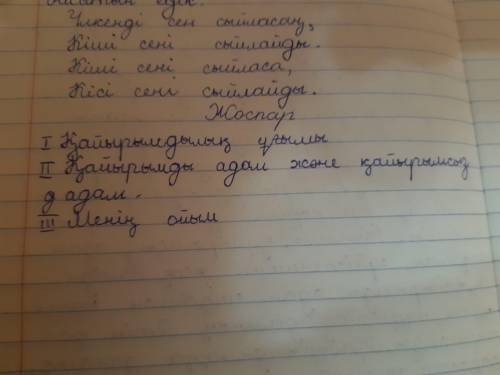 едік.
Үлкенді сен сыйласаң,
Кіші сені сыйлайды.
Кіші сені сыйласа,
Кісі сені сыйлайды.
Жоспар
I Қайырымдылық ұғымы
II Қайырымды адам және қайырымсыз
адам.
III Менің ойым